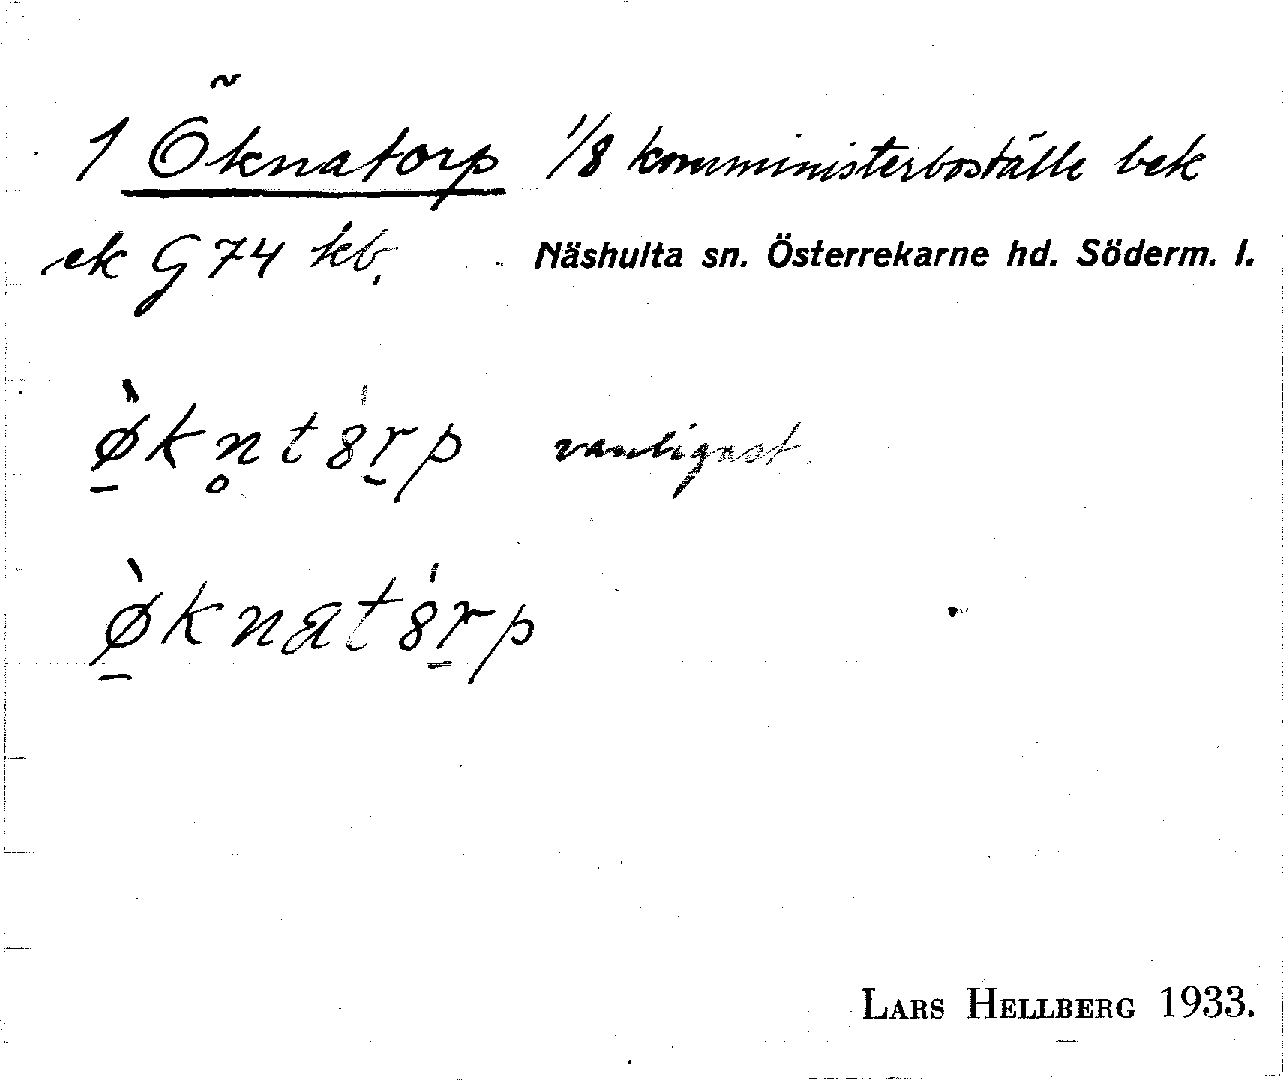 1 Öknatorp 1/8 komministerboställe bek
ek G 74 kb. Näshulta sn. Österrekarne hd. Söderm. l.
ø̱̀kn̥tȣ́ṟp vanligast
ø̱̀knatȣ́ṟp
LARS HELLBERG 1933.